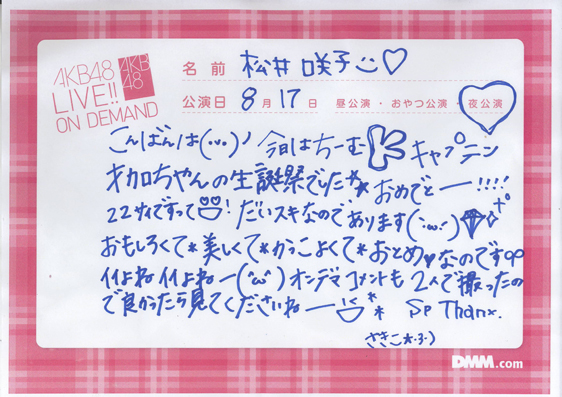 AKB48
LIVE!!
ON DEMAND
AKB
48
名前 松井咲子
公演日 8月17日 昼公演・おやつ公演・夜公演
こんばんは(・ω・)ノ 今日はちーむKキャプテン
才加ちゃんの生誕祭でした** おめでとー!!!!
22才ですって! だいスキなのであります(・ω・´)
おもしろくて*美しくて*かっこよくて*おとめ♥なのです∞
イイよねイイよねー(´ω`)オンデマコメントも2人で撮ったの
で良かったら見てくださいねー**
Sp Thanx.
さきこ*・3・)
DMM.com